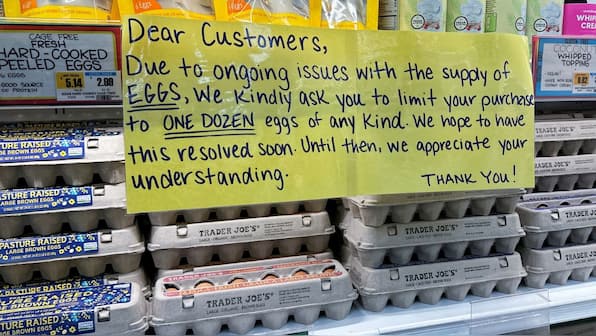 CAGE FREE
FRESH
HARD-COOKED
PEELED EGGS
6 EGGS
GOOD SOURCE
OF PROTEIN
5.14
2.99
Dear Customers,
Due to ongoing issues with the supply of
EGGS, We kindly ask you to limit your purchase
to ONE DOZEN eggs of any kind. We hope to have
this resolved soon. Until then, we appreciate your
understanding.
THANK YOU!
COCONUT
WHIPPED
TOPPING
TURE RAISED
E BROWN EGGS
PASTURE RAISED
LARGE BROWN EGGS
PASTURE RAISED
LARGE BROWN EGGS
TRADER JOE'S
TRADER JOE'S
TRADER JOE'S
TRADER JOE'S
TRADER JOE'S
TRADER JOE'S